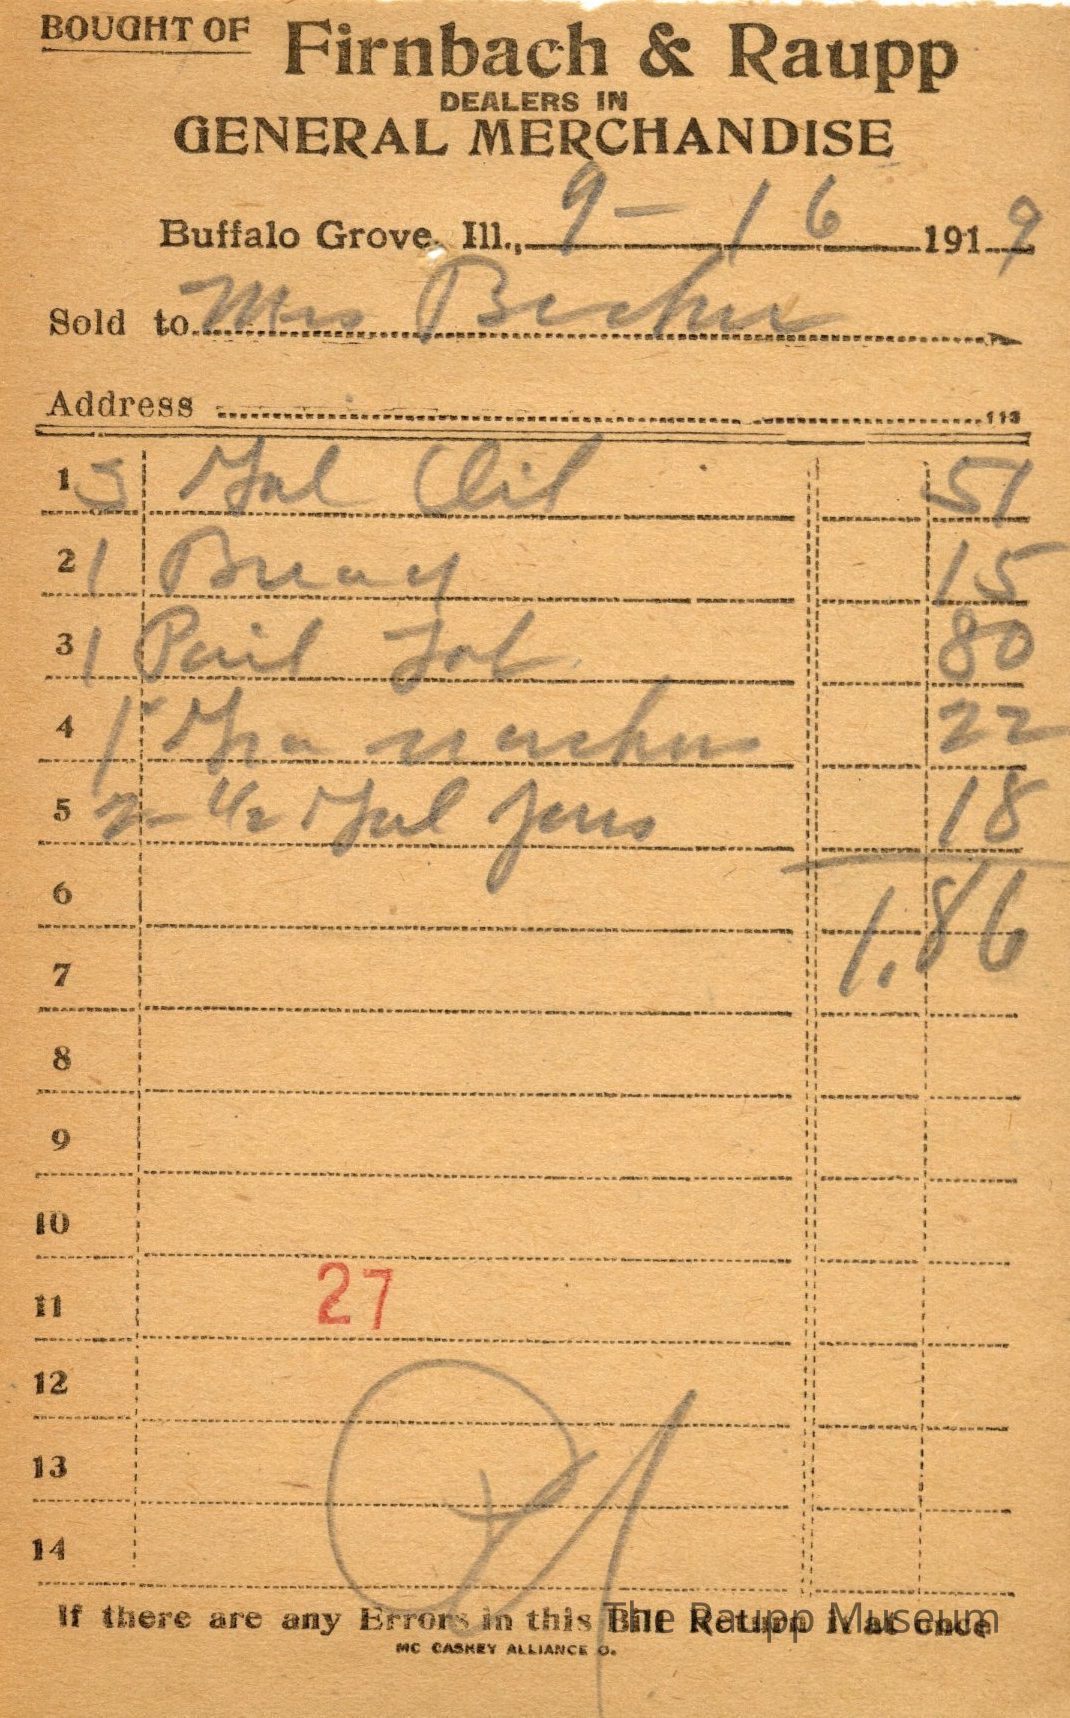 BOUGHT OF Firnbach & Raupp
DEALERS IN
GENERAL MERCHANDISE
Buffalo Grove, Ill., 9-16 1919
Sold to Mrs
Address 113
1 3 Gal Oil 51
2 1 15
3 1 Pail 80
4 1 22
5 2-1/2 Gal Jars 18
6 1.86
7
8
9
10
11 27
12
13
14
If there are any Errors in this Bill Return it at once
The Raupp Museum
MC CASKEY ALLIANCE O.